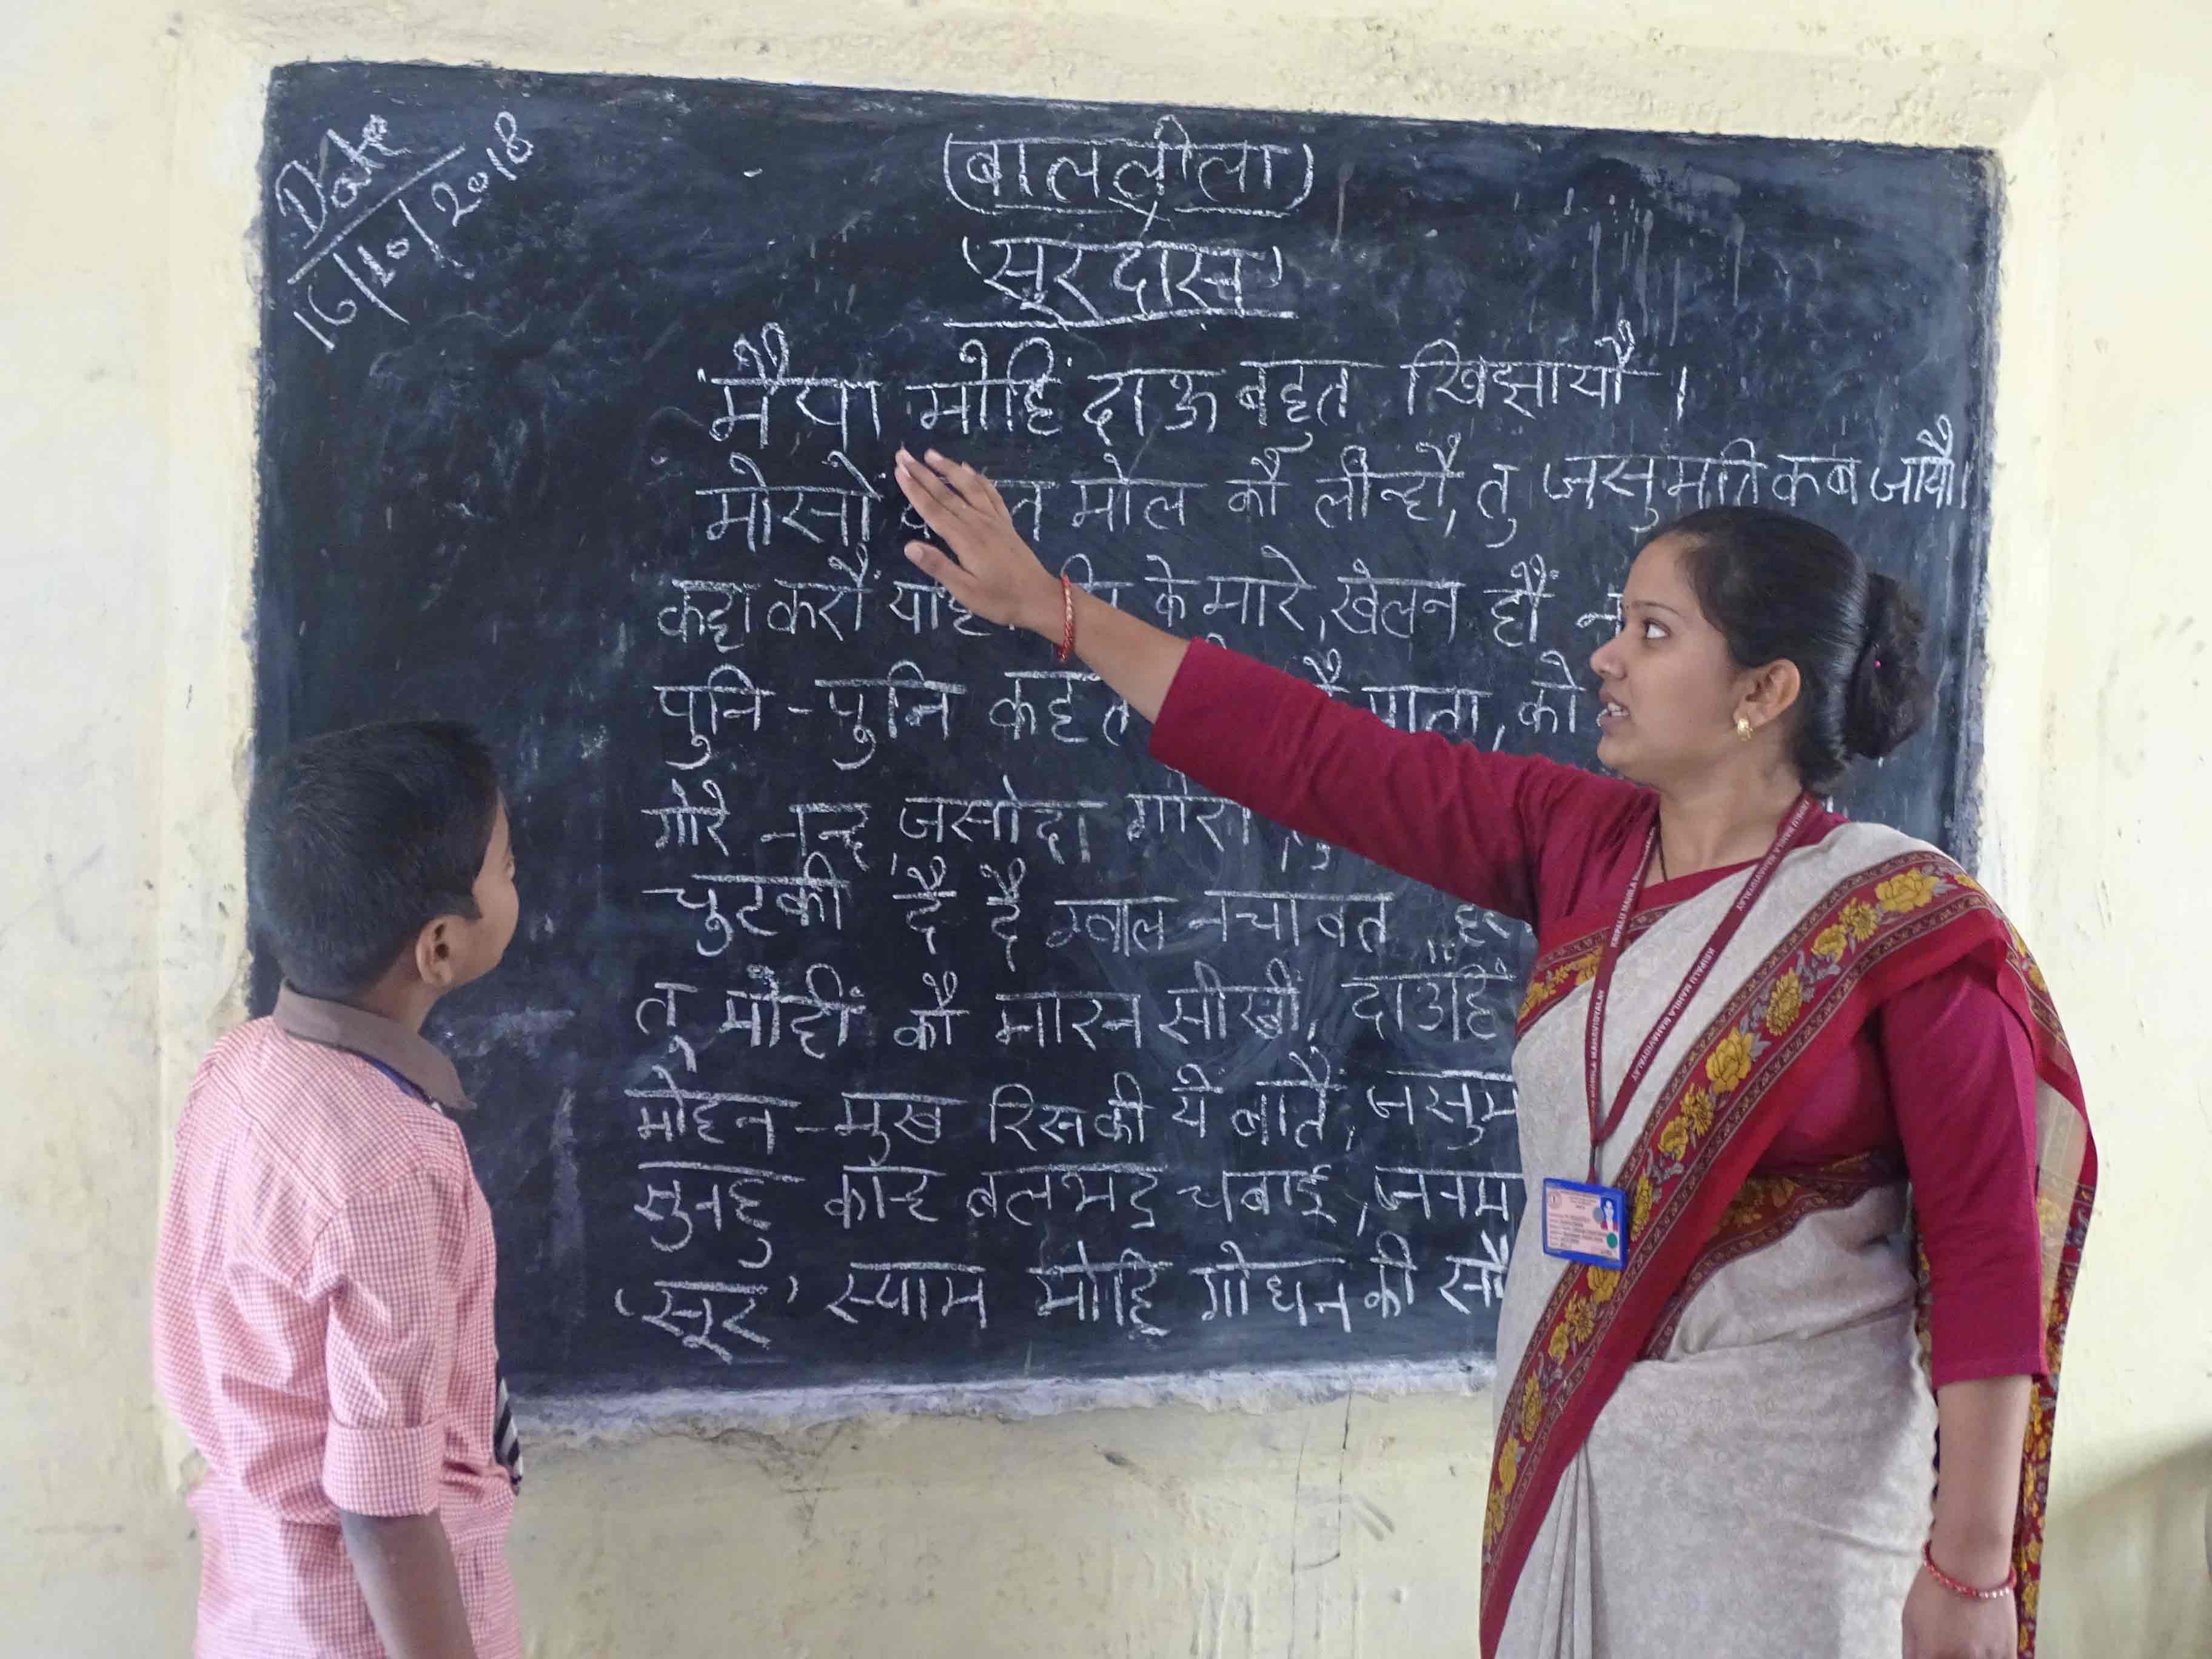 Date
16/10/2018
(बाललीला)
'सूरदास'
'मैया मोहिं दाऊ बहुत खिझायौ।
मोसों मोल कौ लीन्हौ, तु जसुमति कब जायौ।
कहा करौं के मारे, खेलन हौं
पुनि-पुनि कहत माता, को
गोरे नन्द, जसोदा गोरी
चुटकी दै दै ग्वाल नचावत,
तू मोहीं कौ मारन सीखी, दाउहिं
मोहन-मुख रिसकी ये बातें, जसुम
सुनहु कान्ह बलभद्र चबाई, जनम
'सूर' स्याम मोहि गोधन की सौं
KRIPALU MAHILA MAHAVIDYALAY